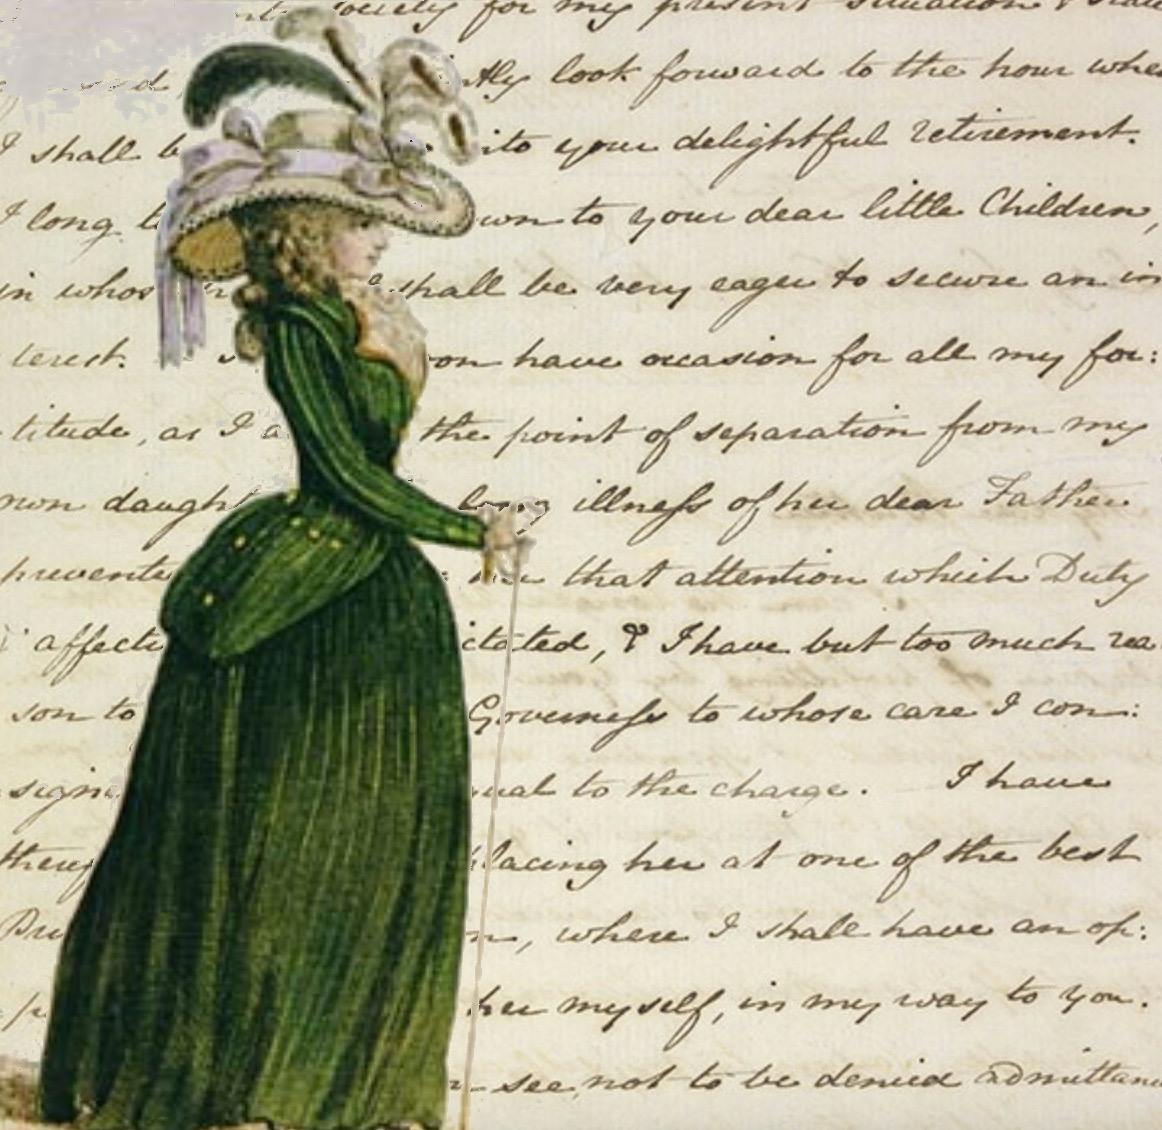 society for my present situation & state
look forward to the hour when
I shall b ito your delightful retirement.
I long t wn to your dear little Children,
in whos shall be very eager to secure an in
terest. on have occasion for all my for:
titude, as I a the point of separation from my
own daught long illness of her dear Father
prevente that attention which Duty
affecti ctated, & I have but too much rea
son to Governess to whose care I con:
signe ual to the charge. I have
theref lacing her at one of the best
n, where I shall have an op:
her myself, in my way to you.
see, not to be denied admittanc